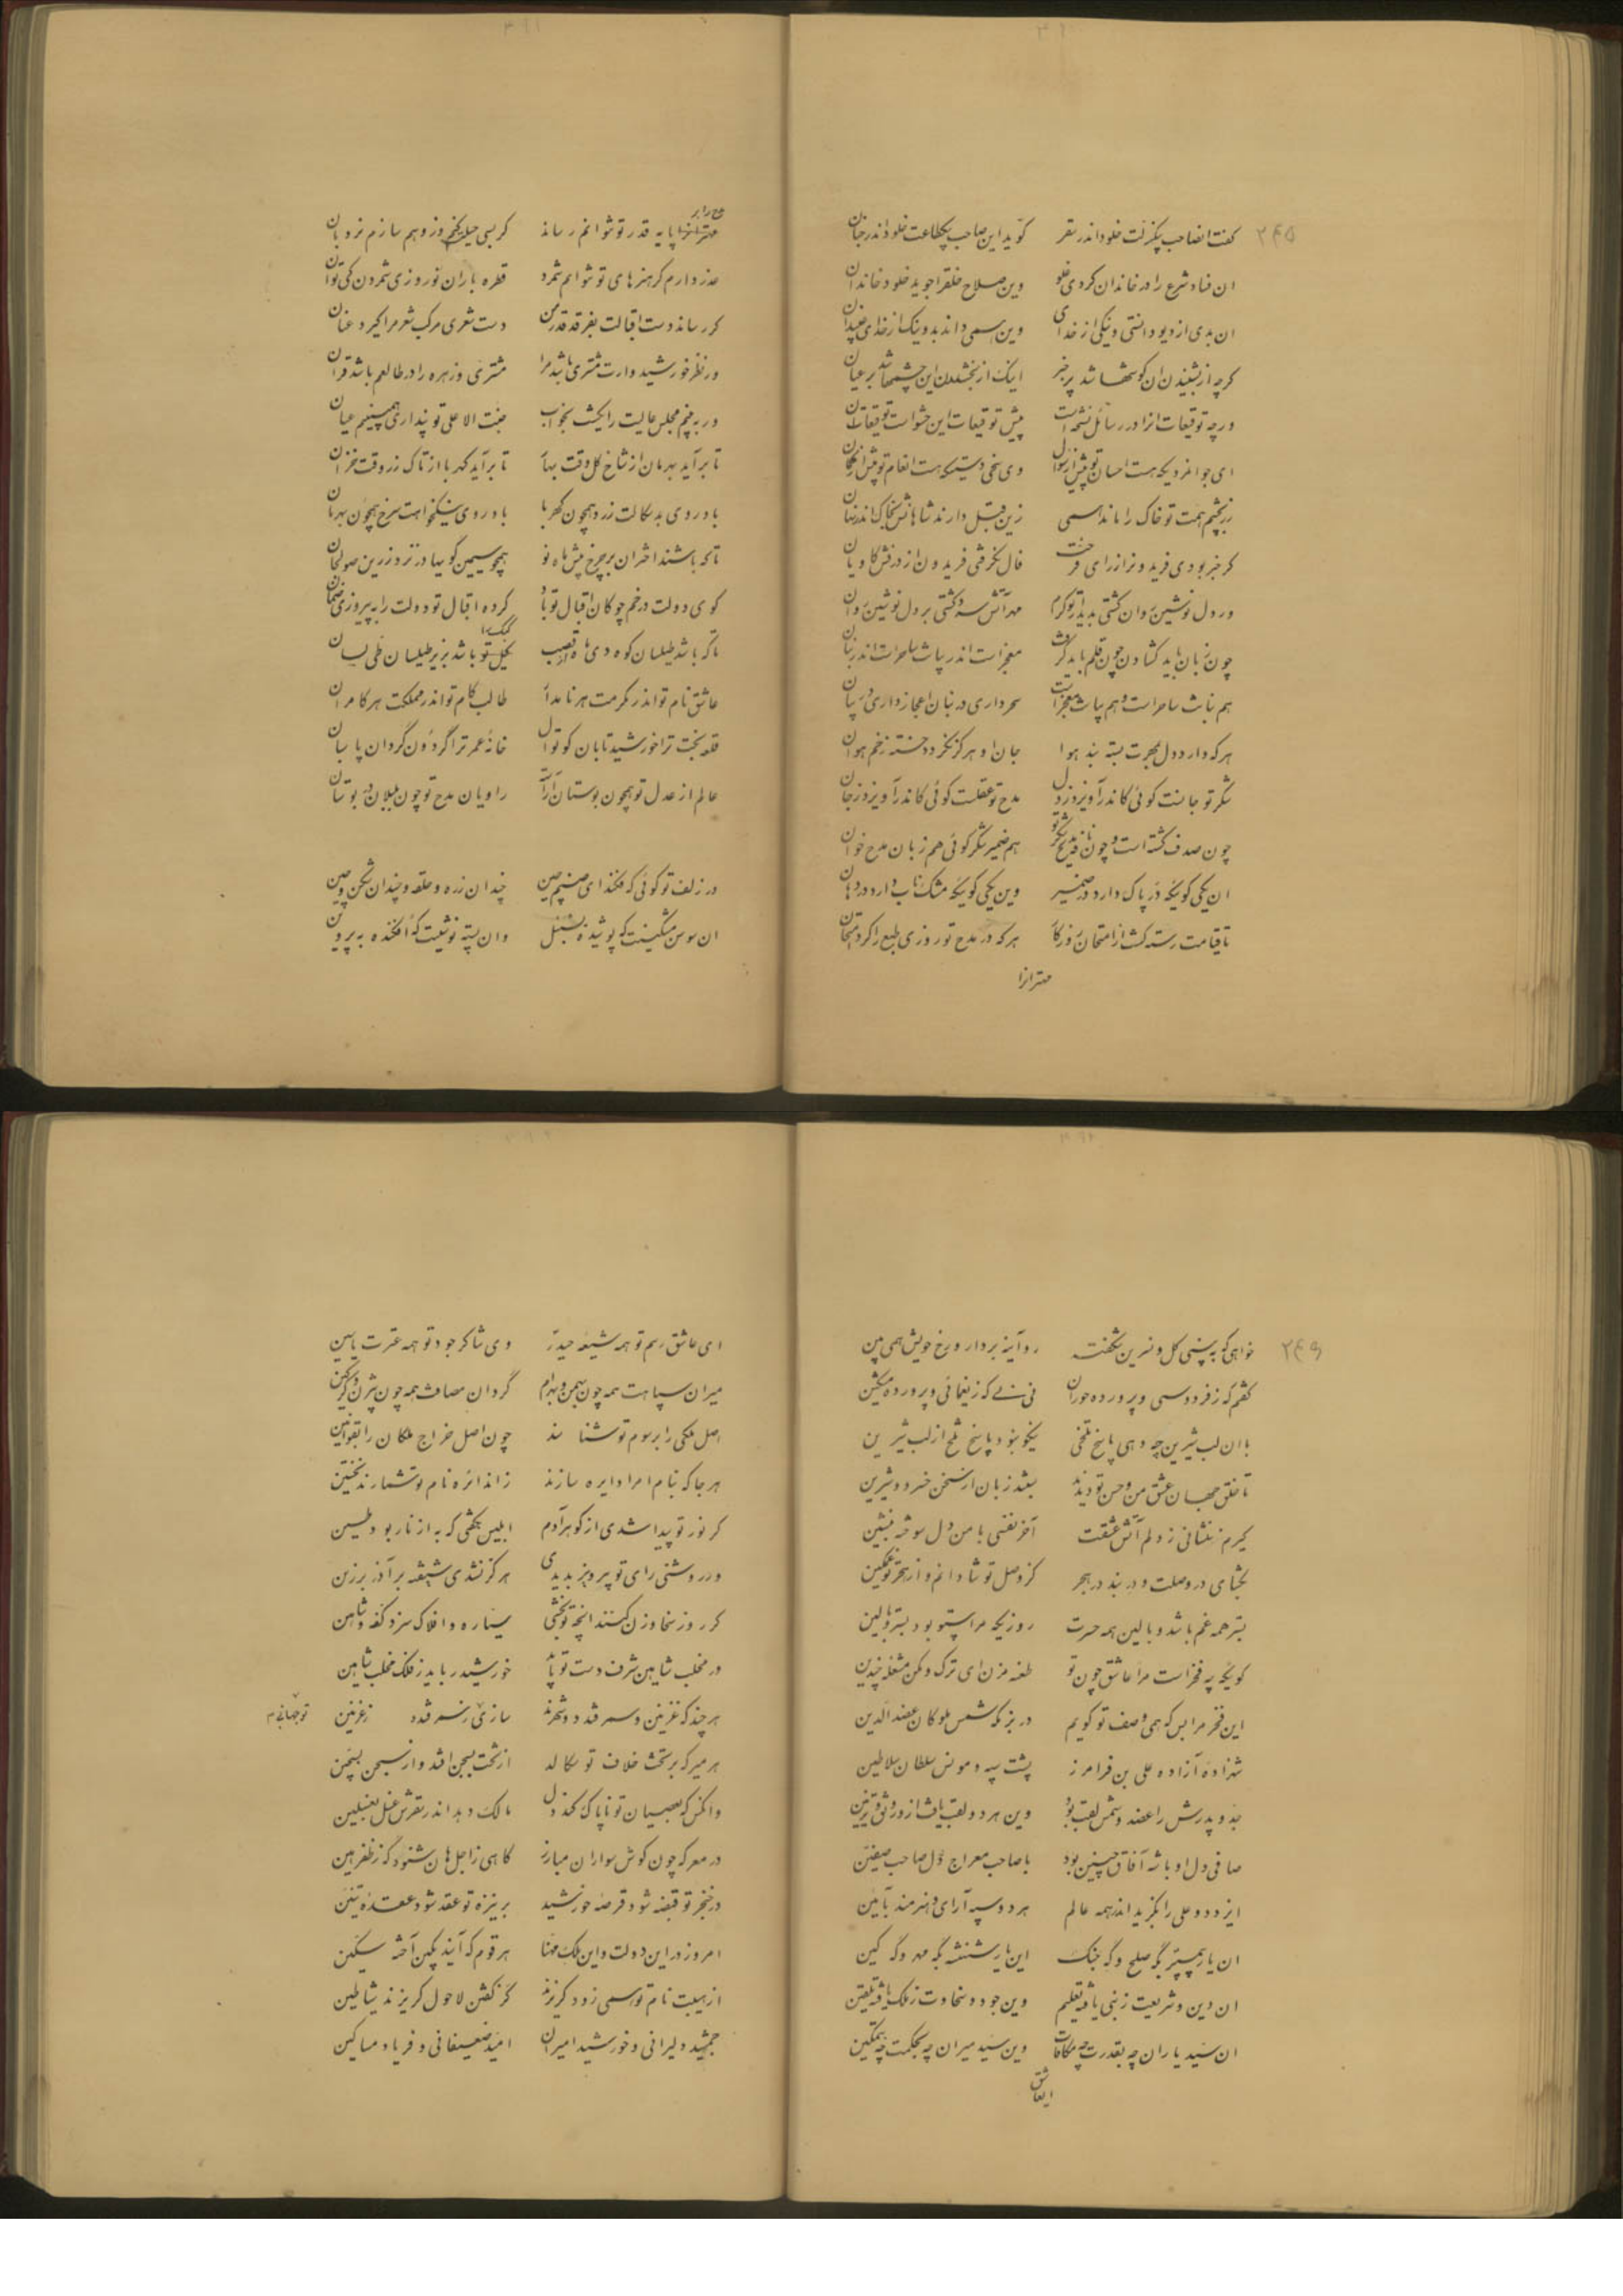 ۲۴۵
گفت انصاحب پکزلت خلود اندر سقر گوید این صاحب پکطاعت خلود اندر جنان
ان فساد شرع را در خاندان کردی خلو وین صلاح خلقرا جوید خلود خاندان
ان بدی از دیو دانستی و نیکی از خدای وین همی داند بد و نیک از خدای غیبدان
کرچه از شنیدن ان گوشها شد پر خبر اینک از بخشیدن این چشمها شد بر عیان
ورچه توقیعات انرا در رسائل نسختست پیش توقیعات این حشو است توقیعات ان
ای جوانمردیکه هست احسان تو پیش از سوال وی سخی دستیکه هست انعام تو پیش از گمان
زر بچشم همت تو خاک را ماند همی زین قبل دارند شاهانش بخاک اندر نهان
کر خبر بودی فریدونرا ز رای فرخت فال نکرفتی فریدون از درفش کاویان
ور دل نوشین روان کشتی بدیدار تو کرم مهر آتش سرد کشتی بر دل نوشین روان
چون زبان باید کشادن چون قلم باید گرفت معجز است اندر بیانت ساحر است اندر بنان
هم بنانت ساحر است و هم بیانت معجز است سحر داری در بنان اعجاز داری در بیان
هر که دارد دل بمهرت بسته بند هوا جان او هرگز نکردد خسته زخم هوان
شکر تو جانست کوئی کاندر آویزد ز دل مدح تو عقلست کوئی کاندر آویزد ز جان
چون صدف کشته است و چون نافه بمدح و شکر تو هم ضمیر شکر کوئی هم زبان مدح خوان
ان یکی گوئیکه در پاک دارد در ضمیر وین یکی کوئیکه مشک ناب دارد در دهان
تا قیامت رسته کشت از امتحان روزکار هر که در مدح تو روزی طبع را کرد امتحان
مهترانرا
مهترانرا پایه قدر تو نتوانم رساند کر بسی حیلت کنم وز وهم سازم نردبان
عذر دارم کر هنرهای تو نتوانم شمرد قطره باران نوروزی شمردن کی توان
کر رساند دست اقبالت بفرقد قدر من دست شعری مرکب شعر مرا کیرد عنان
ور نظر خورشید وارت مشتری باشد مرا مشتری و زهره را در طالعم باشد قران
ور ببینم مجلس عالیت را یکشب بخواب جنت الاعلی تو پنداری همی بینم عیان
تا برآید بهرمان از شاخ کل وقت بهار تا برآید کهربا از تاک رز وقت خزان
باد روی بدسکالت زرد همچون کهربا باد روی نیکخواهت سرخ همچون بهرمان
تا که باشند اختران بر چرخ پیش ماه نو همچو سیمین کویها در نزد زرین صولجان
کوی دولت در خم چوکان اقبال تو باد کرده اقبال تو دولت را به پیروزی ضمان
تا که باشد طیلسان کوه دی ماه از قصب کبک
عاشق نام تو اندر مکرمت هر نامدار طالب کام تو اندر مملکت هر کامران
قلعه بخت ترا خورشید تابان کوتوال خانه عمر ترا گردون گردان پاسبان
عالم از عدل تو همچون بوستان آراسته راویان مدح تو چون بلبلان در بوستان
در زلف تو کوئی که فکند ای صنم چین چندان زره و حلقه و چندان شکن و چین
ان سوسن مشکینست که پوشیده بسنبل وان پسته نوشینست که افکنده به پروین
۲۴۶
خواهی که ببینی کل و نسرین شکفته رو آینه بردار و رخ خویش همی بین
کفتم که ز فردوسی و پرورده حوران نی نی که ز یغمائی و پرورده مشکین
با ان لب شیرین چه دهی پاسخ تلخی نیکو نبود پاسخ تلخ از لب شیرین
تا خلق جهان عشق من و حسن تو دیدند بستند زبان از سخن خسرو و شیرین
کیرم ننشانی ز دلم آتش عشقت آخر نفسی با من دل سوخته بنشین
بکشای در وصلت و در بند در هجر کز وصل تو شادانم و از هجر تو غمکین
بستر همه غم باشد و بالین همه حسرت روزیکه مرا بیتو بود بستر و بالین
گوئیکه چه فخر است مرا عاشق چون تو طعنه مزن ای ترک و مکن مشغله چندین
این فخر مرا بس که همی وصف تو کویم در بزمکه شمس ملوکان عضدالدین
شهزاده آزاده علی بن فرامرز پشت سپه و مونس سلطان سلاطین
جد و پدرش را عضد و شمس لقب بود وین هر دو لقب یافت از و رونق و تزیین
صافی دل او باشه آفاق چنین بود با صاحب معراج دل صاحب صفین
ایزد دو علی را بگزید اندر همه عالم هر دو سپه آرای و هنرمند بآیین
ان یار پیمبر بگه صلح و گه جنگ این یار شهنشه بگه مهر و گه کین
ان دین و شریعت ز نبی یافته تعلیم وین جود و سخاوت ز ملک یافته تلقین
ان سید یاران چه بقدرت چه مکافات وین سید میران چه بحکمت چه بتمکین
ایعاشق
ای عاشق رسم تو همه شیعه حیدر وی شاکر جود تو همه عترت یاسین
میران سپاهت همه چون بهمن و بهرام گردان مصافت همه چون بیژن و گرگین
اصل ملکی را برسوم تو شناسند چون اصل خراج ملکان را بقوانین
هر جا که بنام امرا دایره سازند زان دائره نام تو شمارند نخستین
کر نور تو پیدا شدی از گوهر آدم ابلیس نکفتی که به از نار بود طین
ور روشنی رای تو پرویز بدیدی هرگز نشدی شیفته بر آذر برزین
کر روز سخا وزن کنند انچه تو بخشی سیاره و افلاک سزد کفه و شاهین
در مخلب شاهین شرف دست تو باید خورشید رباید ز فلک مخلب شاهین
هر چند که غزنین و سمرقند دو شهرند سازی ز سمرقند ز غزنین
هر میر که بر تخت خلاف تو سکالد از تخت بسجن افتد و از سجن بسجین
وانکس که بعصیان تو ناپاک کند دل مالک دهد اندر سقرش غسل بغسلین
در معرکه چون کوش سواران مبارز کاهی ز اجل هان شنود که ز ظفر هین
در خنجر تو قبضه شود قرصه خورشید بر نیزه تو عقد شود عقده تنین
امروز در این دولت و این ملک مهنا هر قوم که آیند بکین آخته سکین
از هیبت نام تو همی زود گریزند کز گفتن لاحول گریزند شیاطین
جمشید دلیرانی و خورشید امیران امید ضعیفانی و فریاد مساکین